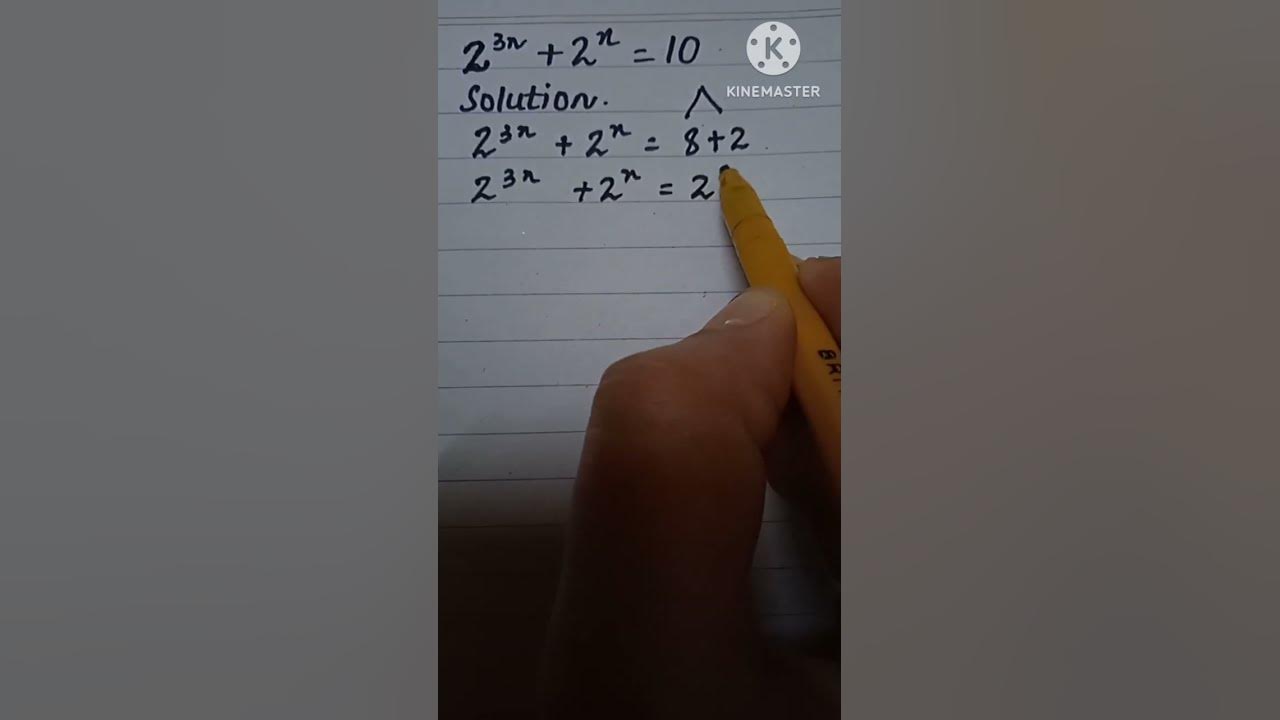 2³ⁿ + 2ⁿ = 10
Solution.
2³ⁿ + 2ⁿ = 8+2
2³ⁿ + 2ⁿ = 2
KINEMASTER